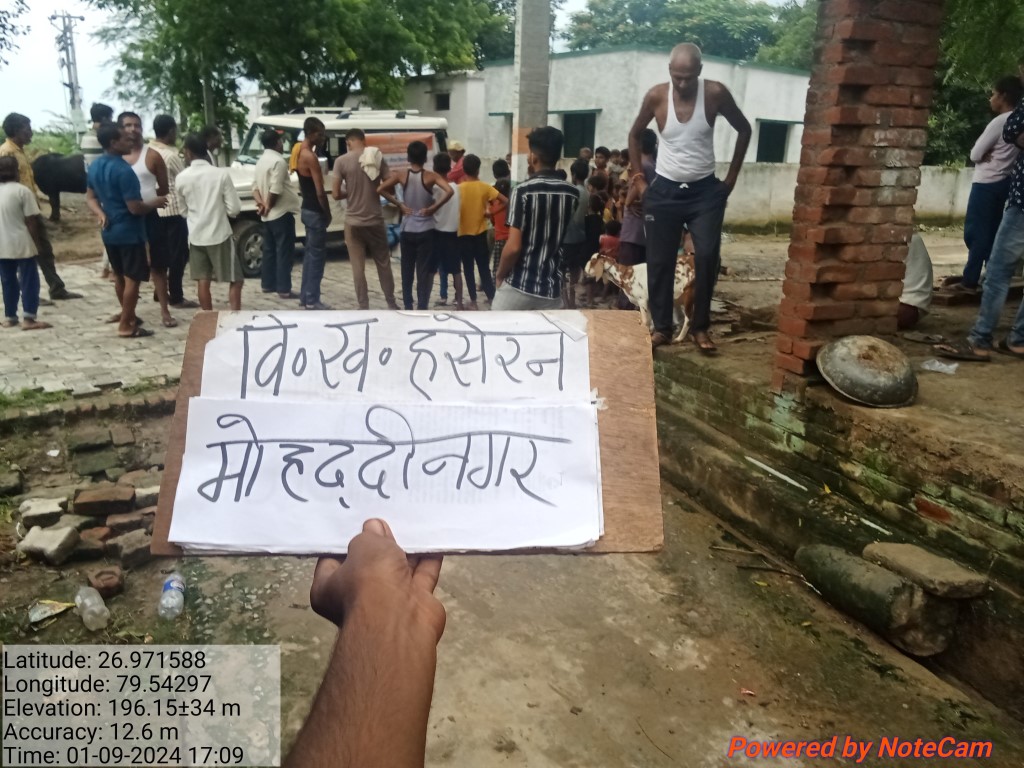 वि०ख० हसेरन
मोहद्दीनगर
Latitude: 26.971588
Longitude: 79.54297
Elevation: 196.15±34 m
Accuracy: 12.6 m
Time: 01-09-2024 17:09
Powered by NoteCam